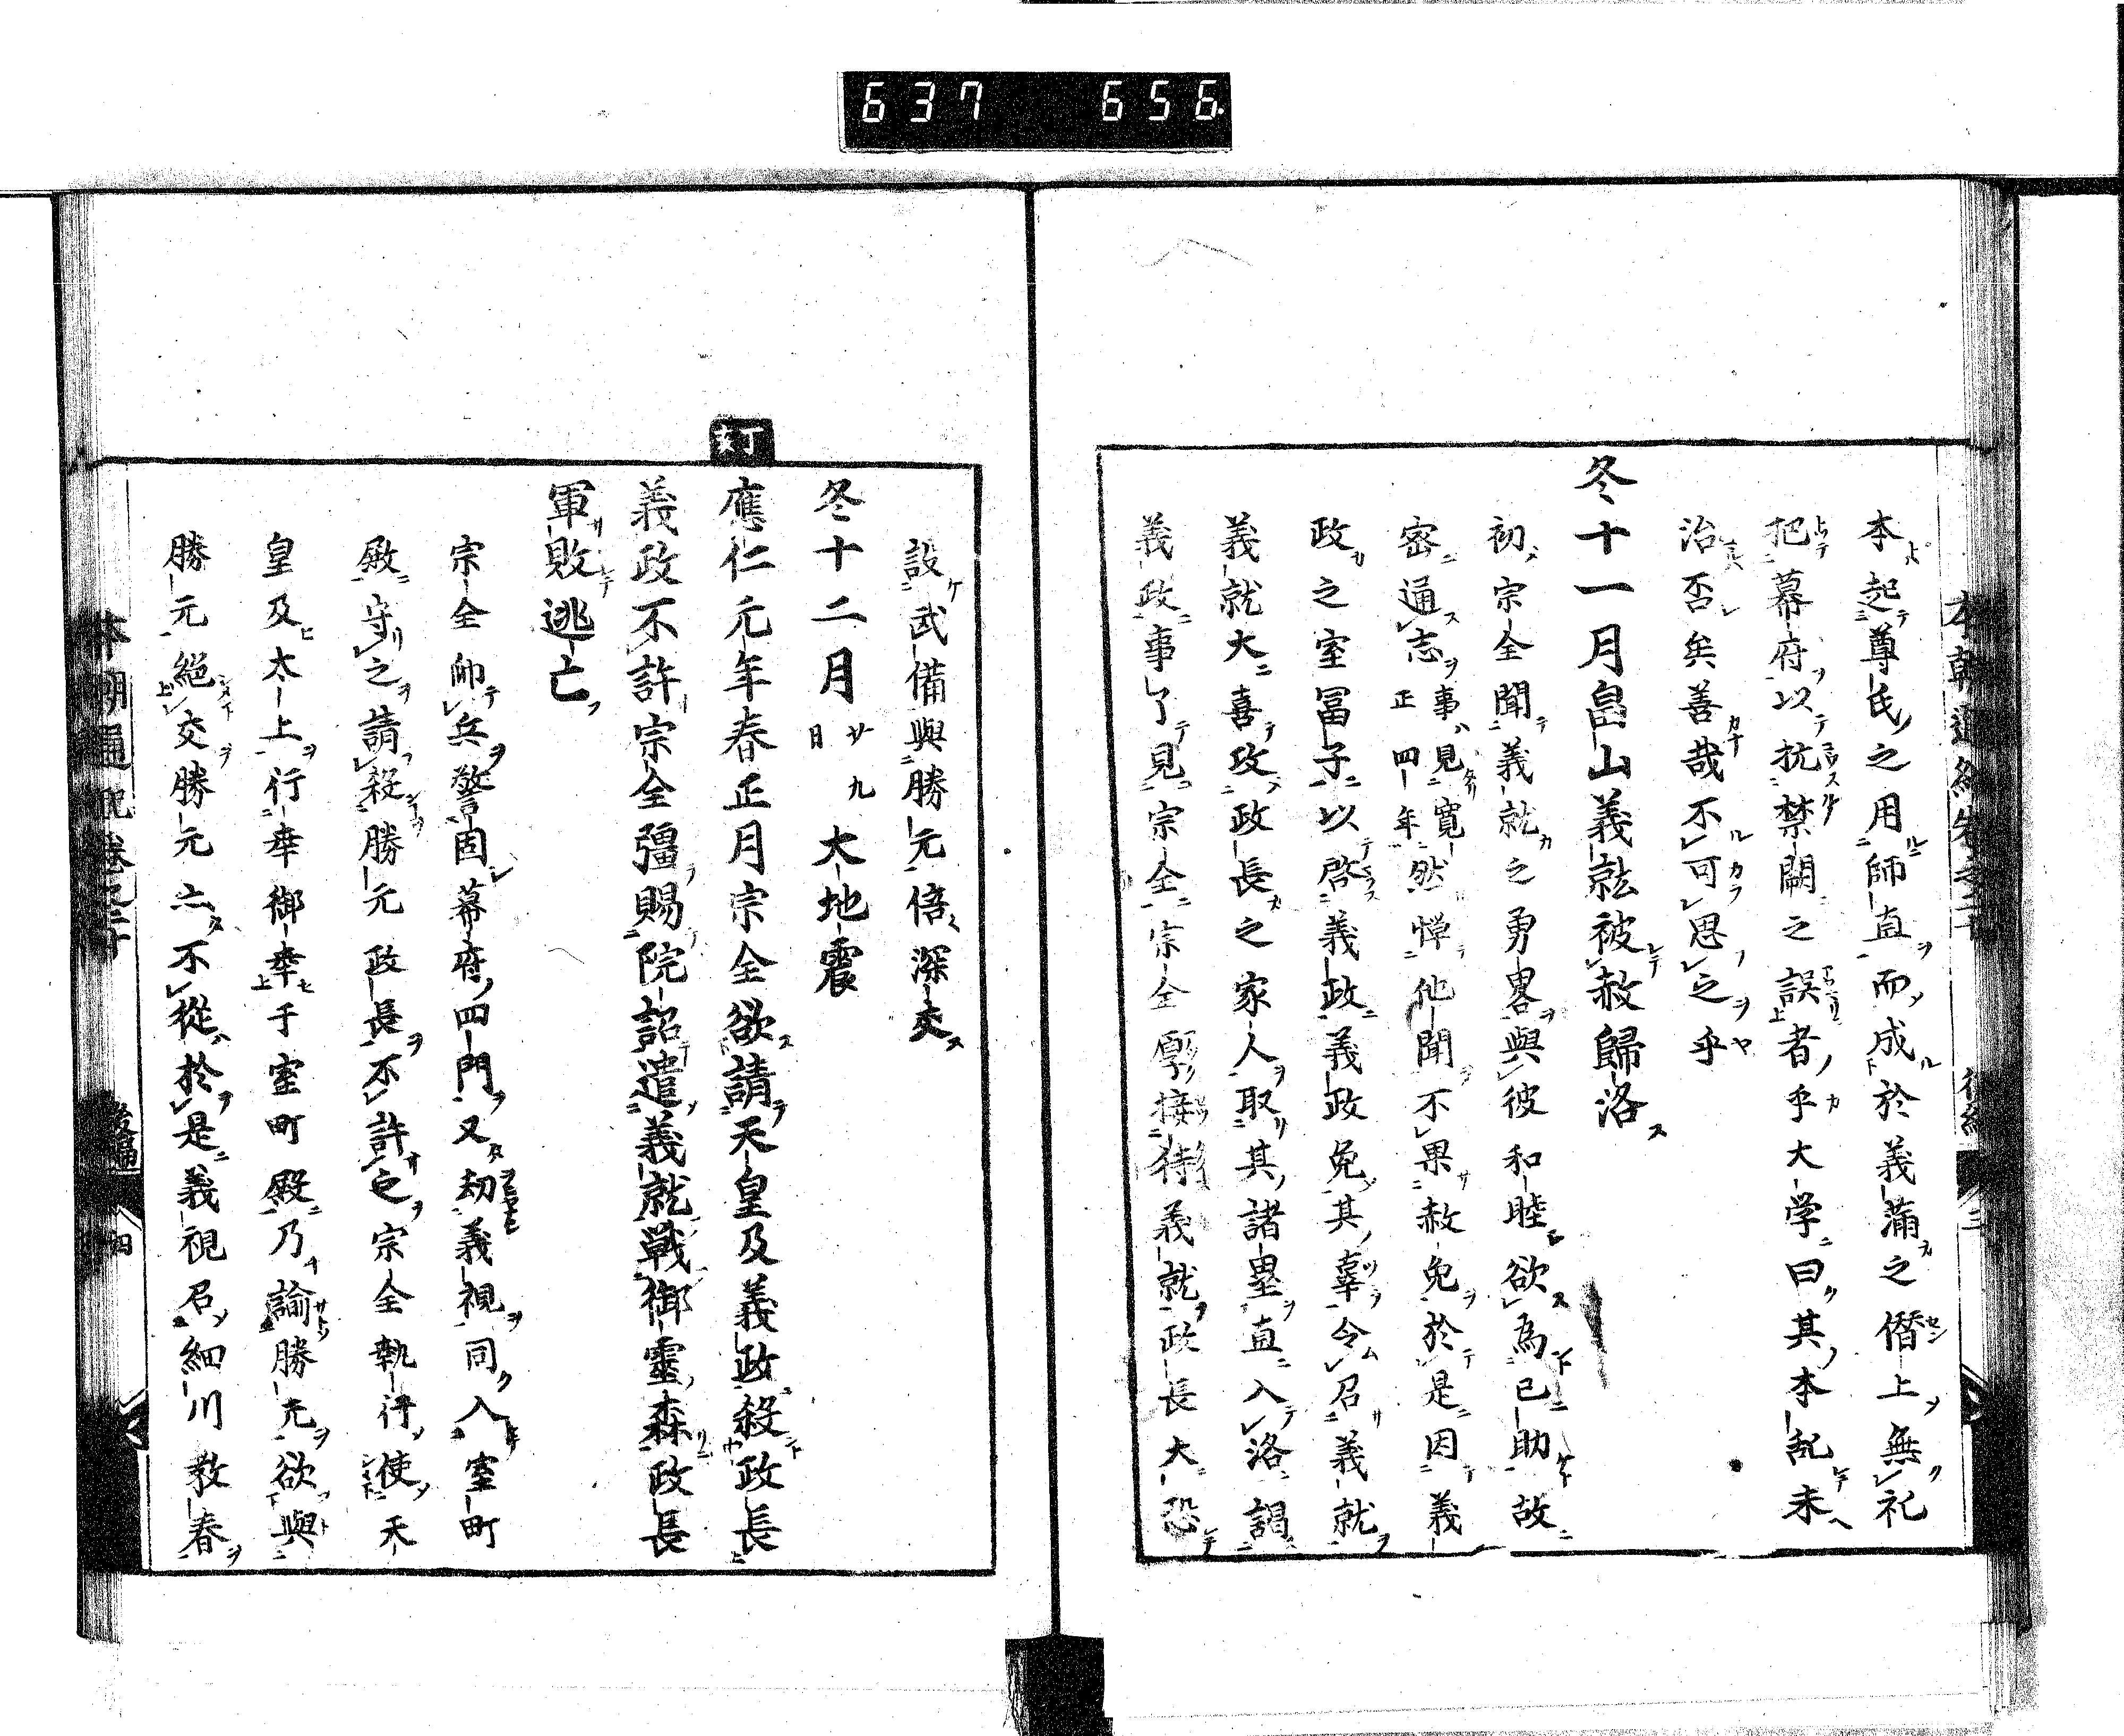 637 656
本起尊氏之用師直而成於義滿之僭上無礼
把幕府以抗禁闕之誤者乎大学曰其本乱未
治否矣善哉不可思之乎
冬十一月畠山義就被赦歸洛
初宗全聞義就之勇畧與彼和睦欲為己助故
密通志事見寛正四年然憚他聞不果赦免於是因義
政之室冨子以啓義政義政免其辜令召義就
義就大喜攻政長之家人取其諸壘直入洛謁
義政事了見宗全宗全厚接待義就政長大恐
設武備與勝元倍深交
冬十二月廿九日大地震
丁亥
應仁元年春正月宗全欲請天皇及義政殺政長
義政不許宗全彊賜院詔遣義就戦御靈森政長
軍敗逃亡
宗全帥兵警固幕府四門又劫義視同入室町
殿守之請殺勝元政長不許之宗全執行使天
皇及太上行幸御幸于室町殿乃諭勝元欲與
勝元絕交勝元亠不從於是義視召細川教春
本朝通紀卷之二十 後編 四